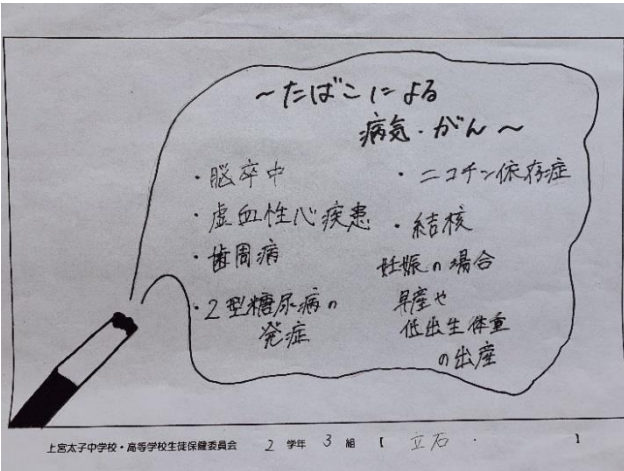 ~たばこによる
病気・がん~
・脳卒中
・虚血性心疾患
・歯周病
・2型糖尿病の
発症
・ニコチン依存症
・結核
妊娠の場合
早産や
低出生体重
の出産
上宮太子中学校・高等学校生徒保健委員会 2 学年 3 組 【 立石・ 】